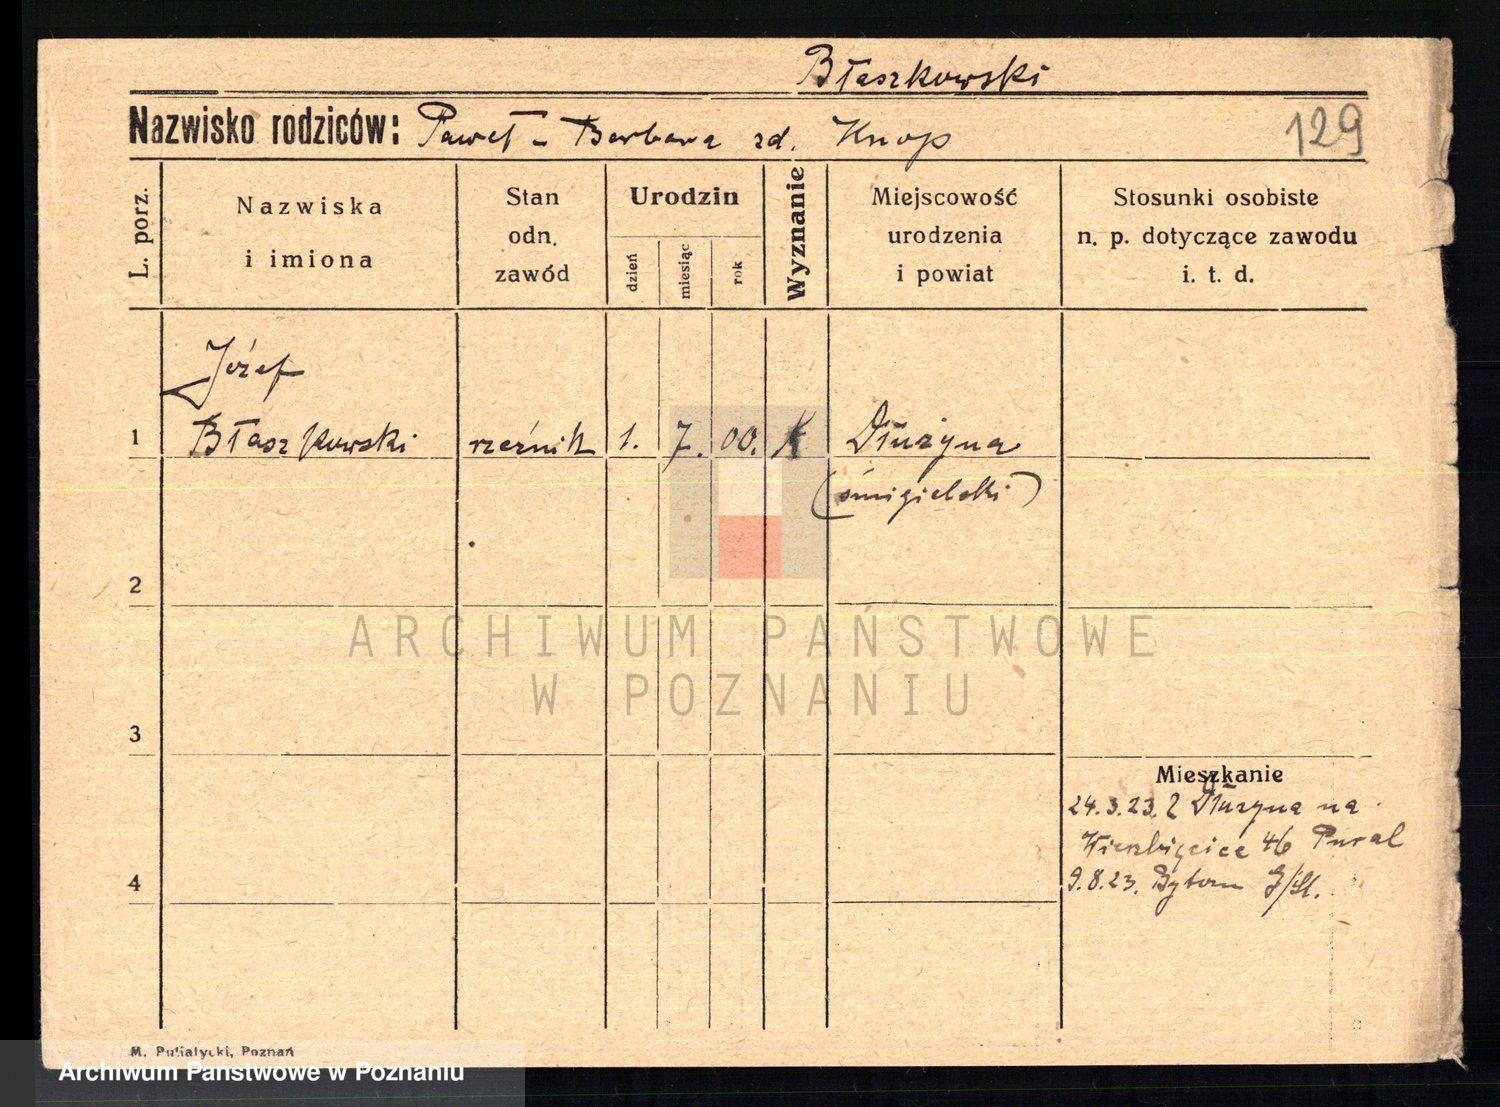 Błaszkowski
Nazwisko rodziców: Paweł - Barbara zd. Knop
129
L. porz.
Nazwiska
i imiona
Stan
odn.
zawód
Urodzin
dzień
miesiąc
rok
Wyznanie
Miejscowość
urodzenia
i powiat
Stosunki osobiste
n. p. dotyczące zawodu
i. t. d.
Józef
1 Błaszkowski rzeźnik 1. 7. 00. K Dłużyna
(śmigielski)
2
3
4
Mieszkanie
24.3.23. Z Dłużyna na
Wierzbięcice 46
9.8.23. Bytom G/Śl.
M. Putiatycki, Poznań
ARCHIWUM PAŃSTWOWE
W POZNANIU
Archiwum Państwowe w Poznaniu